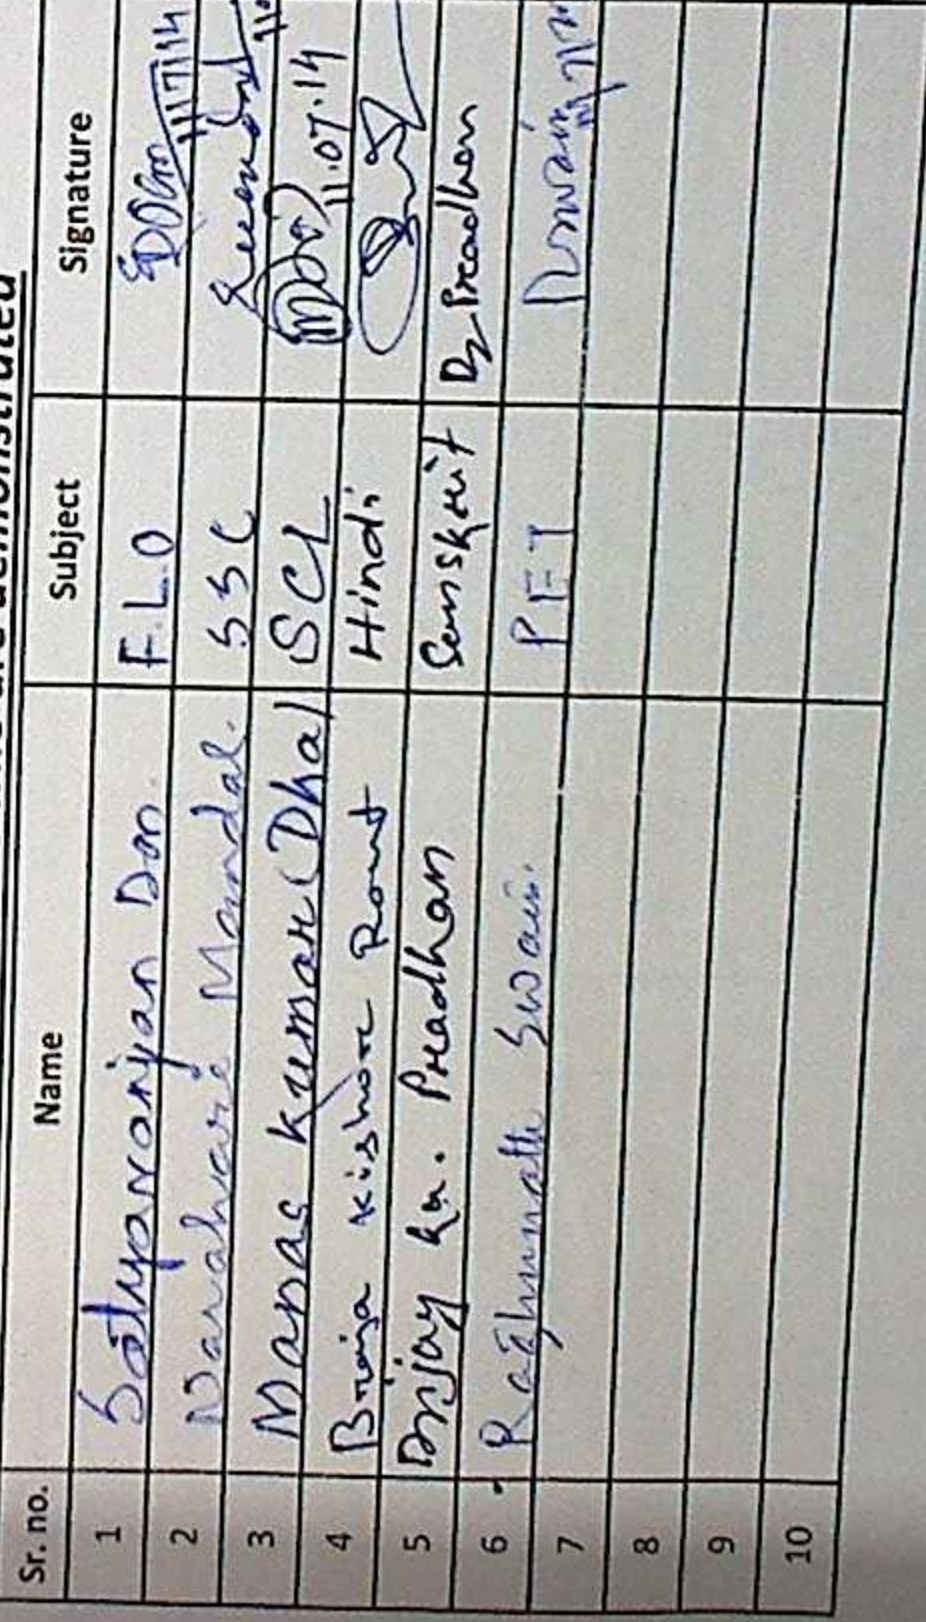 demonstrated
Sr. no. Name Subject Signature
1 Satyaranjan Das. F.L.O 11/7/14
2 Narahari Mandal. SSC
3 Manas Kumar Dhal SCL 11.07.14
4 Braja Kishore Rout Hindi
5 Bijay Ku. Pradhan Sanskrit B Pradhan
6 Raghunath Swain. PET Swain
7
8
9
10